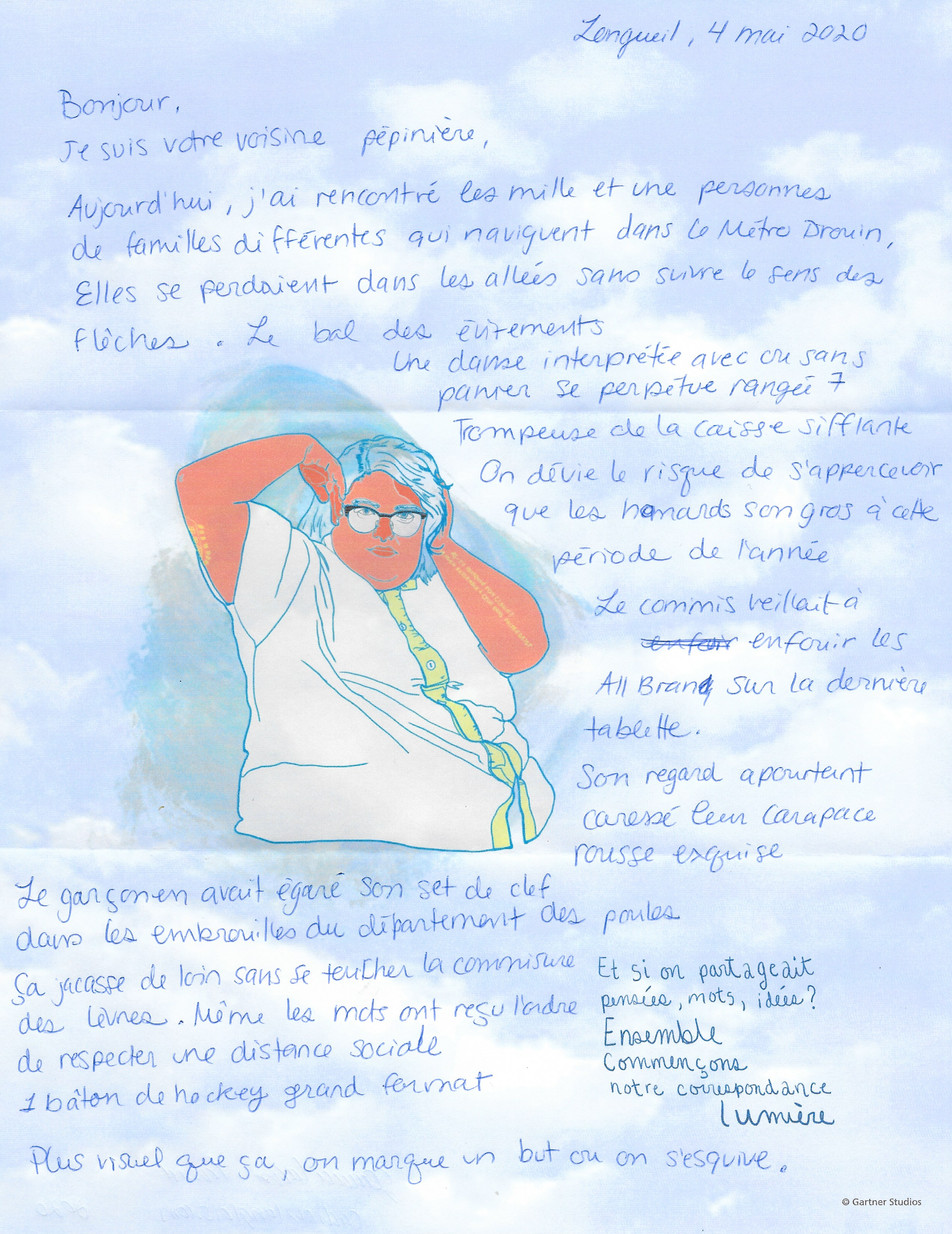 Longueil, 4 mai 2020
Bonjour,
Je suis votre voisine pépinière,
Aujourd'hui, j'ai rencontré les mille et une personnes
de familles différentes qui naviguent dans le Métro Drouin,
Elles se perdaient dans les allées sans suivre le sens des
flèches. Le bal des évitements
Une danse interprétée avec ou sans
panier se perpétue rangée 7
Trompeuse de la caisse sifflante
On dévie le risque de s'appercevoir
que les homards son gros à cette
période de l'année
Le commis veillait à
enfouir les
All Brand sur la dernière
tablette.
Son regard a pourtant
caressé leur carapace
rousse exquise
Le garçon en avait égaré son set de clef
dans les embrouilles du département des poules
Ça jacasse de loin sans se toucher la commisure
des lèvres. Même les mots ont reçu l'ordre
de respecter une distance sociale
1 bâton de hockey grand format
Plus visuel que ça, on marque un but ou on s'esquive.
Et si on partageait
pensées, mots, idées?
Ensemble
Commençons
notre correspondance
lumière
© Gartner Studios